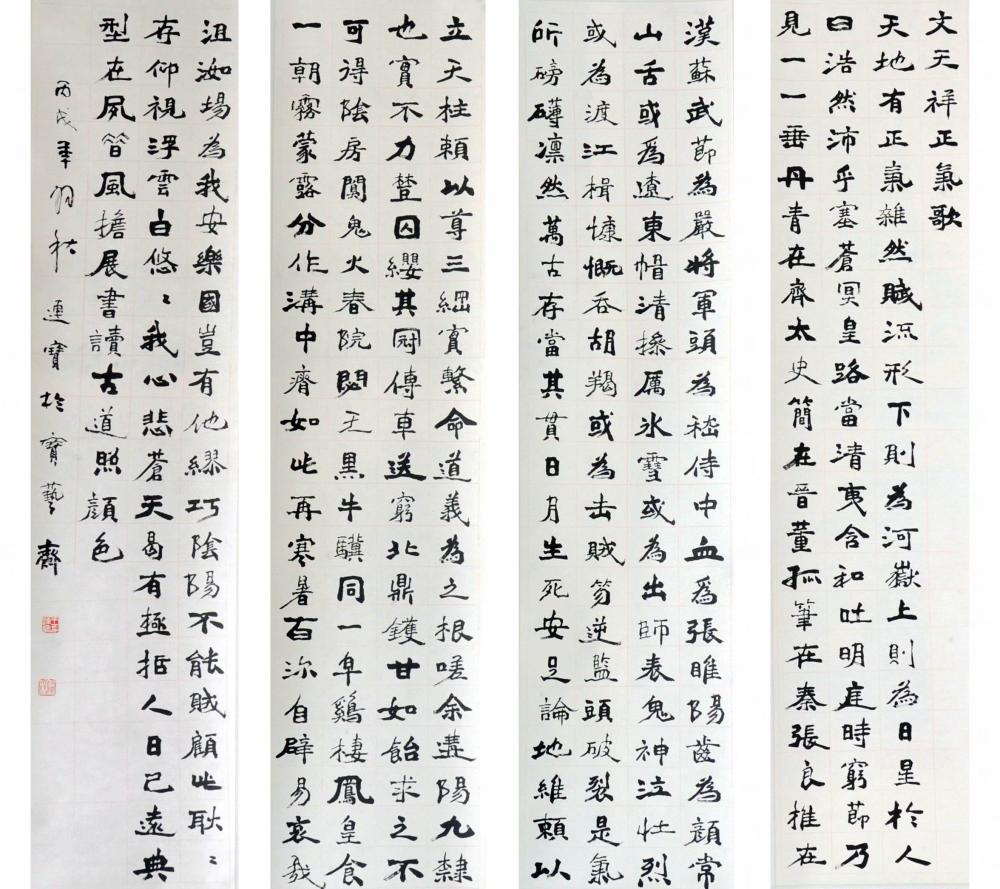 文天祥正氣歌
天地有正氣雜然賦流形下則為河嶽上則為日星於人
曰浩然沛乎塞蒼冥皇路當清夷含和吐明庭時窮節乃
見一一垂丹青在齊太史簡在晉董狐筆在秦張良椎在
漢蘇武節為嚴將軍頭為嵇侍中血爲張睢陽齒為顏常
山舌或爲遼東帽清操厲冰雪或為出師表鬼神泣壯烈
或為渡江楫慷慨吞胡羯或為击賊笏逆豎頭破裂是氣
所磅礴凛然萬古存當其貫日月生死安足論地維賴以
立天柱賴以尊三綱實繫命道義為之根嗟余遘陽九隸
也實不力楚囚纓其冠傳車送窮北鼎鑊甘如飴求之不
可得陰房闃鬼火春院閟天黑牛驥同一皁鷄棲鳳皇食
一朝霧蒙露分作溝中瘠如此再寒暑百沴自辟易哀哉
沮洳場為我安樂國豈有他繆巧陰陽不能賊顧此耿〻
存仰視浮雲白悠〻我心悲蒼天曷有極哲人日已遠典
型在夙昔風檐展書讀古道照顏色
丙戌年初秋連寶於寶藝齋